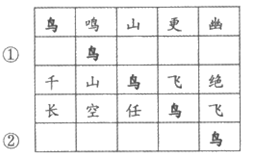 鸟鸣山更幽
① 鸟
千山鸟飞绝
长空任鸟飞
② 鸟